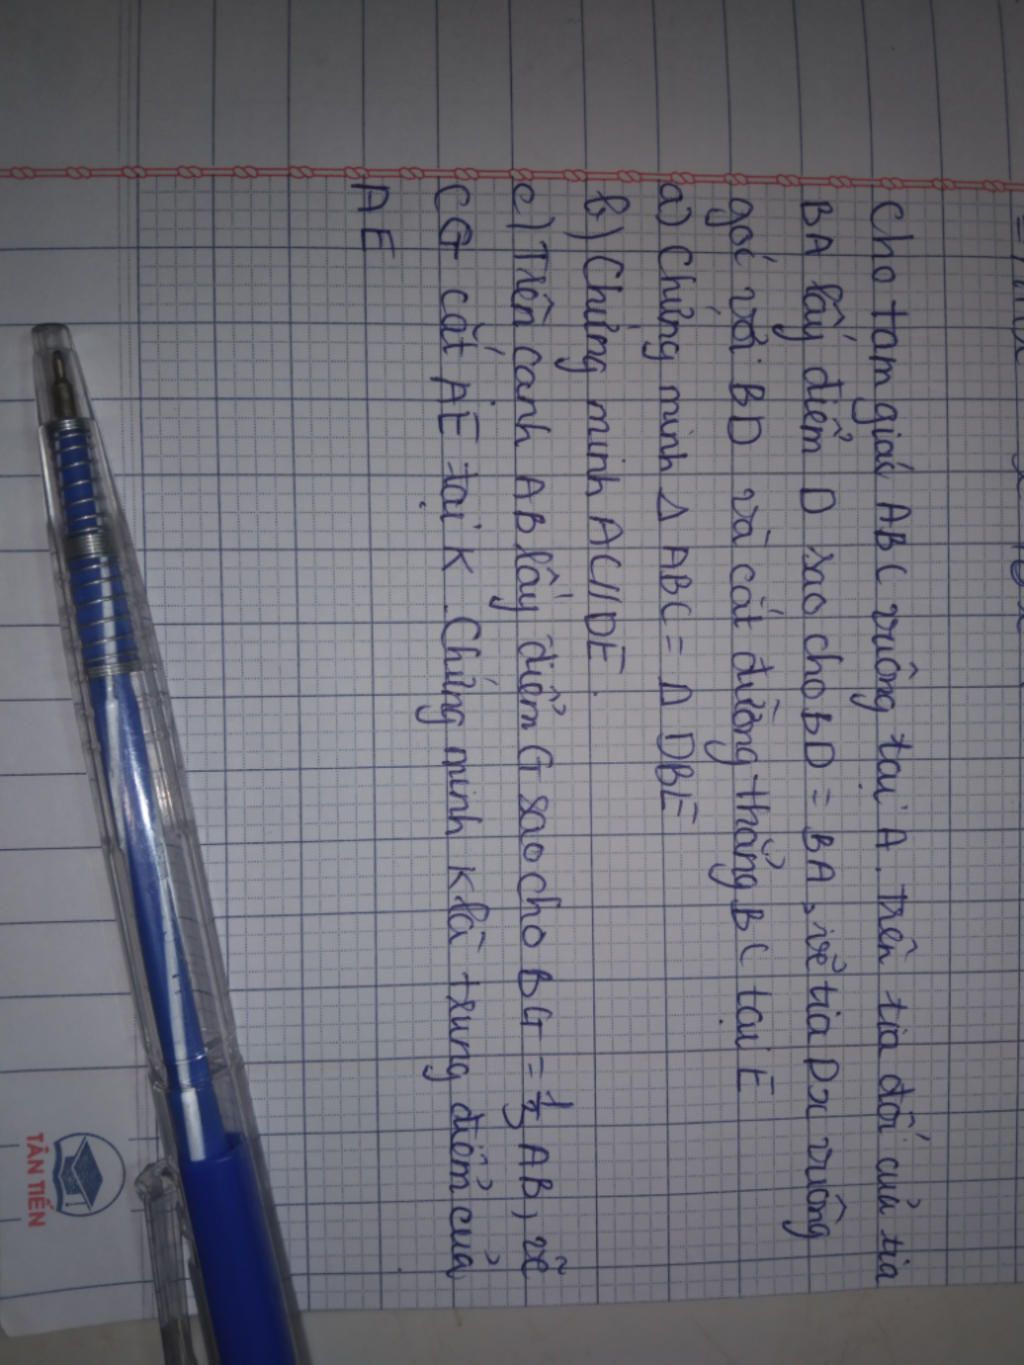 Cho tam giác ABC vuông tại A. Trên tia đối của tia
BA lấy điểm D sao cho BD = BA, vẽ tia Dx vuông
góc với BD và cắt đường thẳng BC tại E
a) Chứng minh Δ ABC = Δ DBE
b) Chứng minh AC // DE.
c) Trên cạnh AB lấy điểm G sao cho BG = 1/3 AB, vẽ
CG cắt AE tại K. Chứng minh K là trung điểm của
AE
TÂN TIẾN